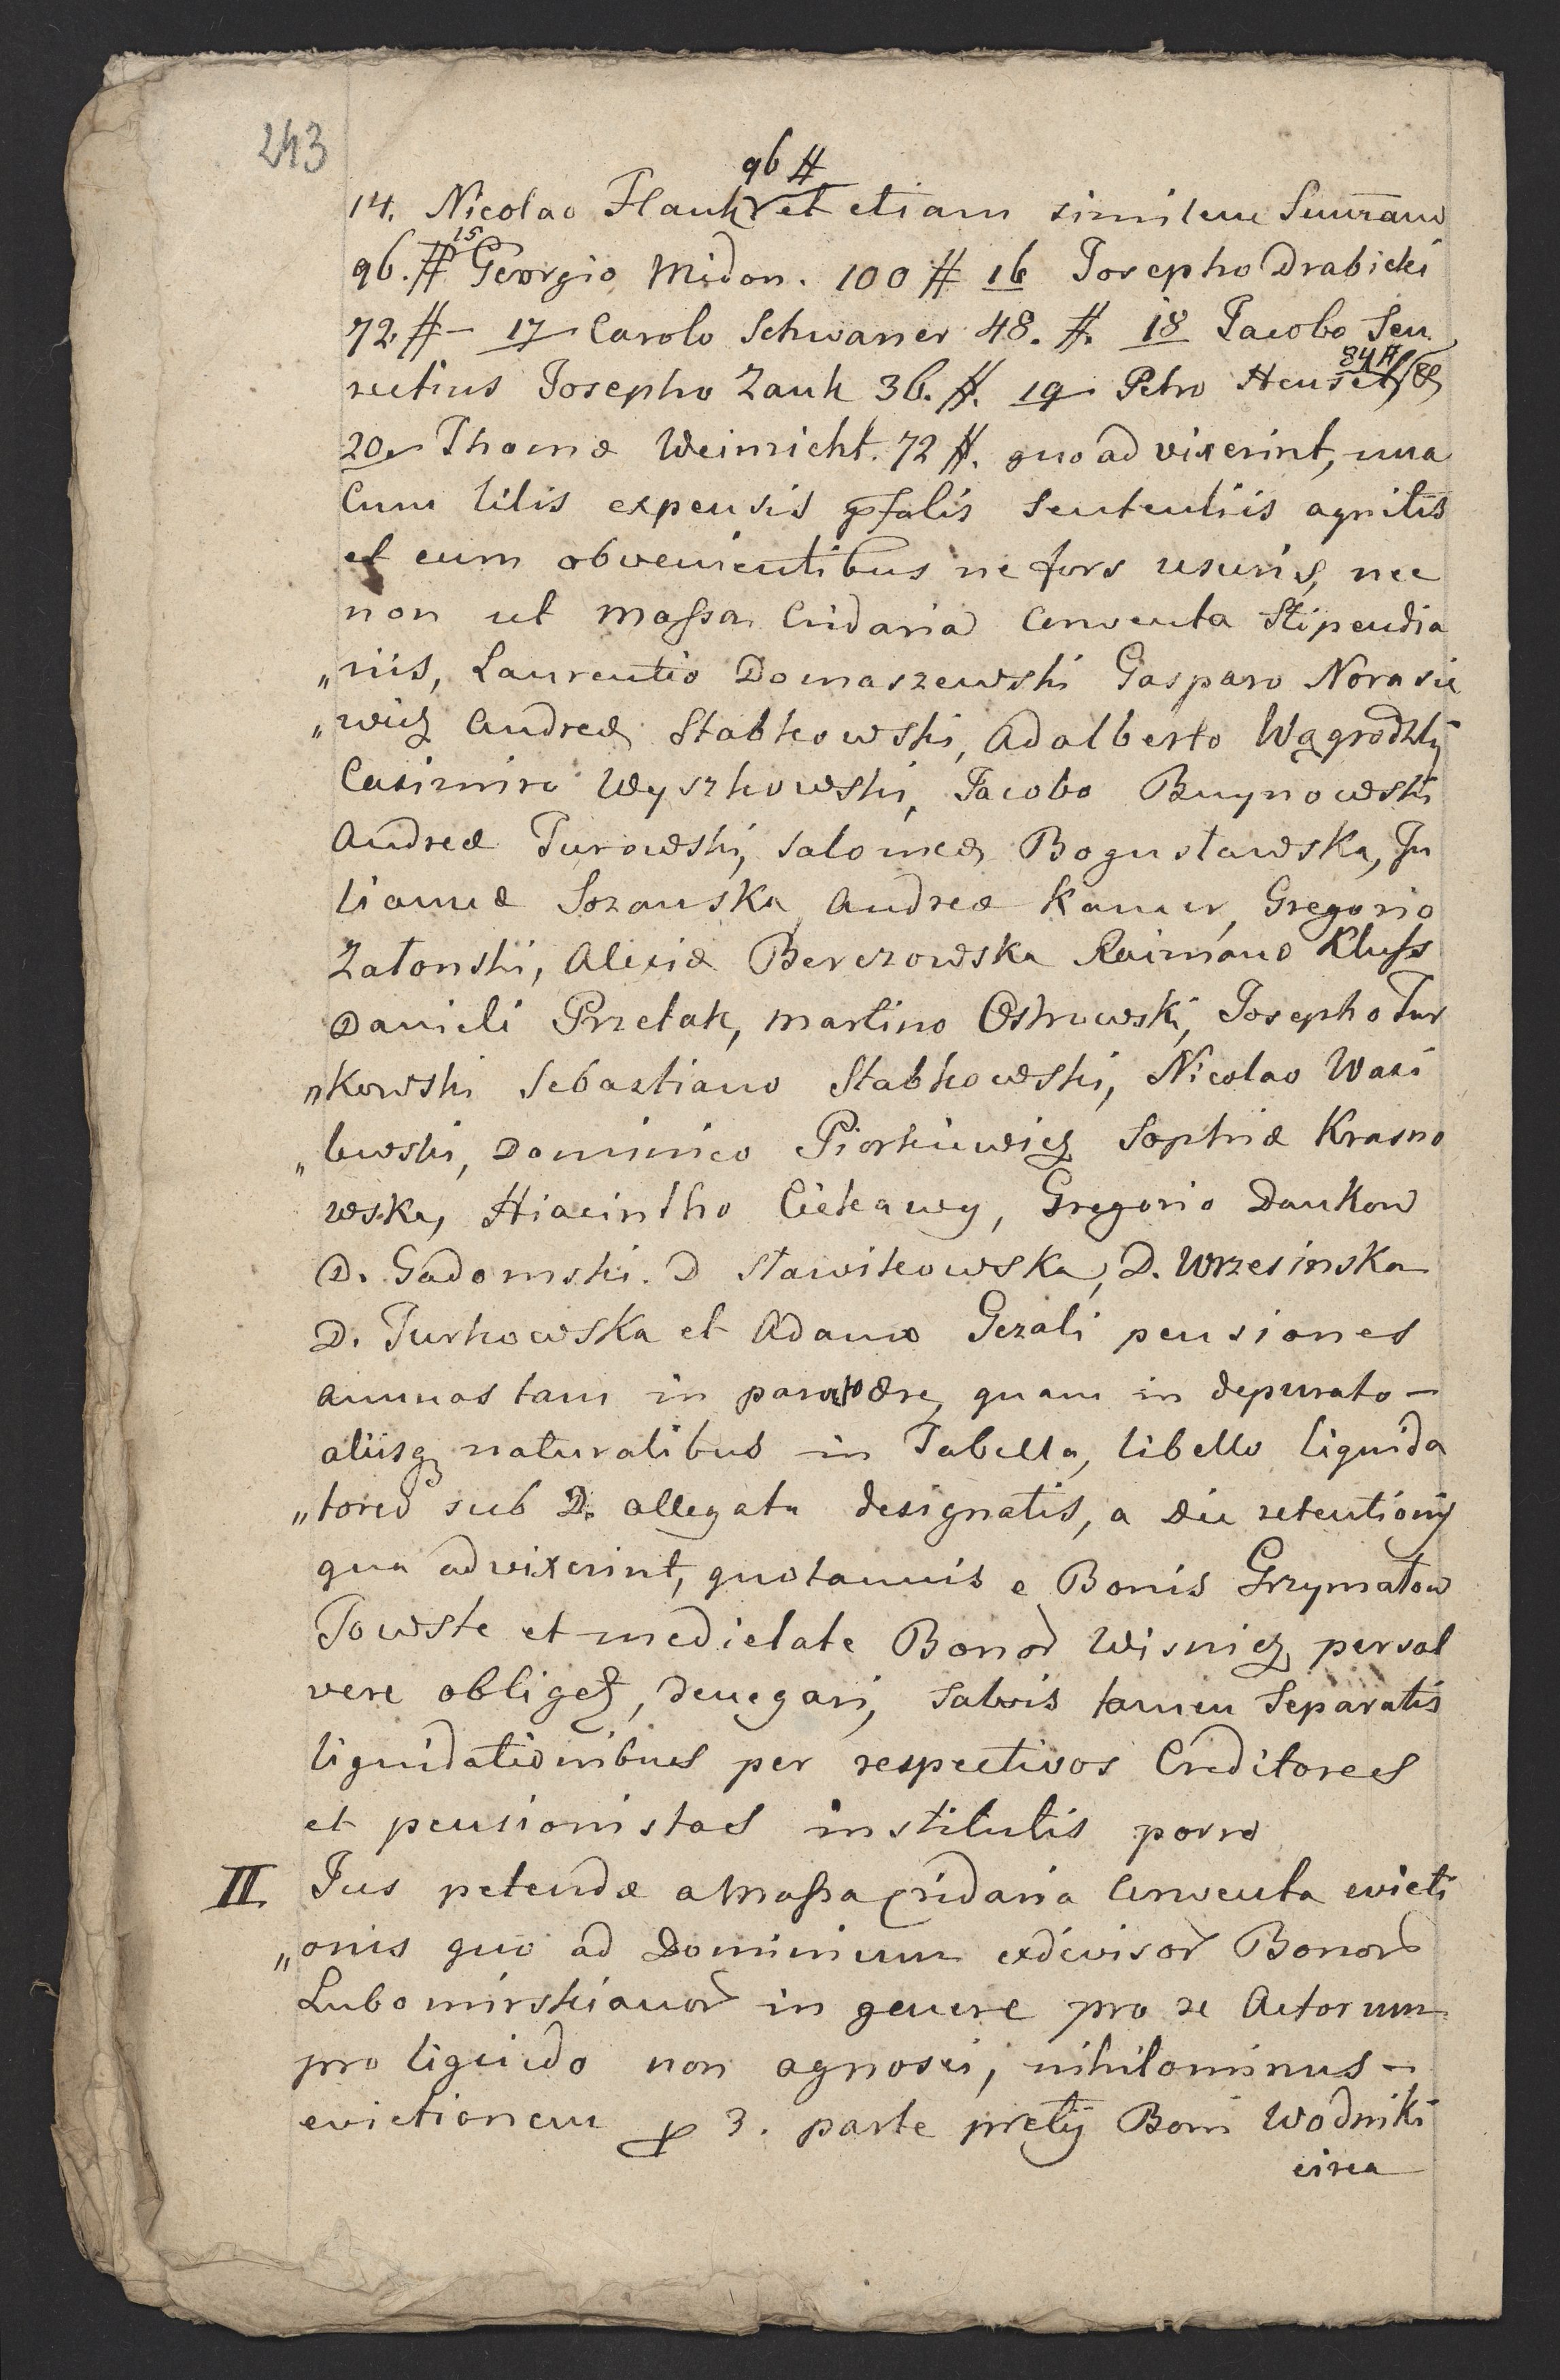 243
96 #
14. Nicolao Flauk et etiam similem Summam
96. # 15 Georgio Midon. 100 # 16 Josepho Drabicki
72 # — 17 Carolo Schwaner 48. #. 18 Jacobo Seu
rectius Josepho Zauk 36. #. 19 Petro Hensel 84 #
20. Thomæ Weinricht. 72 #. quo ad vixerint, una
Cum litis expensis Sententiis agnitis
et cum obvenientibus ne fors usuris, nec
non ut Massa Cridaria Conventa Stipendia
„riis, Laurentio Domaszewski Gasparo Norasie
„wicz Andreæ Stabkowski, Adalberto Wągrodzky
Casimiro Wyszkowski, Jacobo Buynowski
Andreæ Turowski, Salomeæ Bogusławska, Ju
liannæ Sozanska Andreæ Kamer, Gregorio
Zatonski, Aliciæ Berezowska Raimano Kluss
Danieli Przetak, Martino Ostrowski, Josepho Tur
„kowski Sebastiano Stabkowski, Nicolao Wasi
„lewski, Dominico Piorkiewicz Sophiæ Krasno
wska, Hiacintho Ciekawy, Gregorio Dankow
D. Gadomski. D Stawikowska, D. Wrzesinska
D. Turkowska et Adamo Gezali pensiones
annuas tam in parato ære, quam in depurato —
aliisq naturalibus in Tabella, libello liquida
„torio sub D. allegata designatis, a die retentionis
qua advixerint, quotannis e Bonis Grzymatow
Towste et medietate Bonor Wisnicz persol
vere obliget, denegari, salvis tamen Separatis
liquidationibus per respectivos Creditores
et pensionistas institutis porro
II. Jus petendæ a Massa Cridaria Conventa evicti
„onis quo ad Dominium exdivisor Bonor
Lubomirskianor in genere pro se Actorum
pro liquido non agnosci, nihilominus —
evictionem 3. parte pretij Boni Wodniki
circa